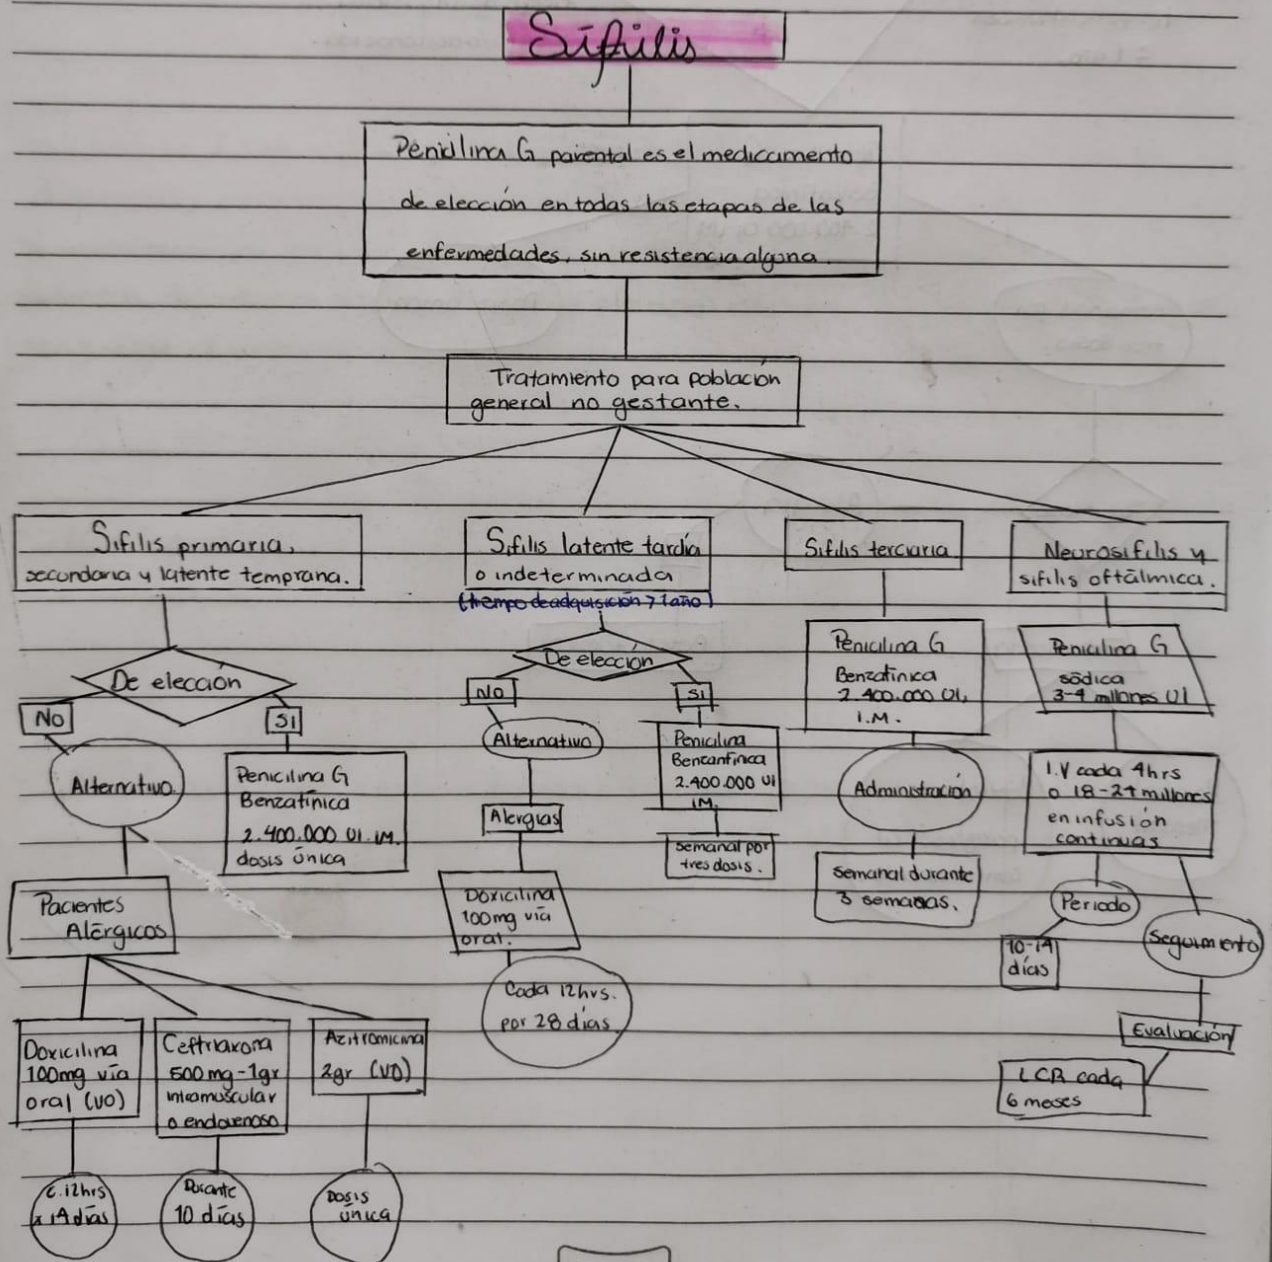 Sífilis
Penicilina G parental es el medicamento
de elección en todas las etapas de las
enfermedades, sin resistencia alguna.
Tratamiento para población
general no gestante.
Sifilis primaria,
secundaria y latente temprana.
De elección
No
Si
Alternativo.
Penicilina G
Benzatínica
2.400.000 UI. IM.
dosis única
Pacientes
Alérgicos
Doxicilina
100mg vía
oral (VO)
c. 12hrs
x 14 días
Ceftriaxona
500 mg - 1gr
intramuscular
o endovenoso
Durante
10 días
Azitromicina
2gr (VO)
Dosis
única
Sifilis latente tardía
o indeterminada
(tiempo de adquisición > 1 año)
De elección
No
Si
Alternativo
Alergias
Doxicilina
100mg vía
oral.
Cada 12hrs.
por 28 días.
Penicilina
Benzantinica
2.400.000 UI
IM.
semanal por
tres dosis.
Sifilis terciaria
Penicilina G
Benzatinica
2.400.000 UI,
I.M.
Administración
Semanal durante
3 semanas.
Neurosifilis y
sifilis oftálmica.
Penicilina G
sódica
3-4 millones UI
I.V cada 4hrs
o 18-24 millones
en infusión
continuas
Periodo
10-14
días
Seguimiento
Evaluación
LCR cada
6 meses